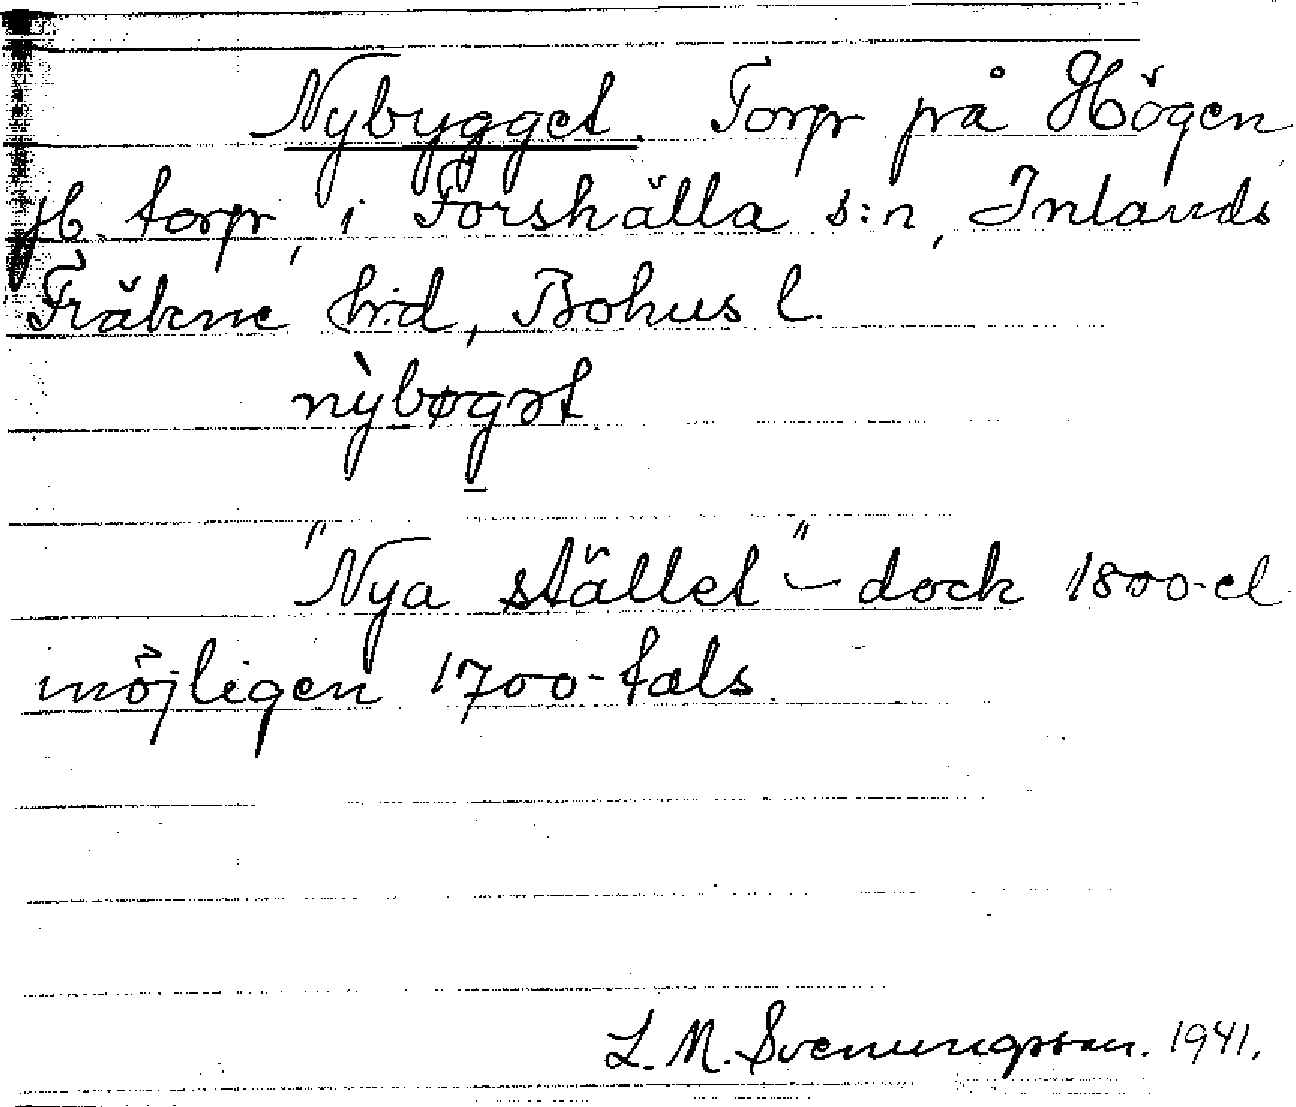 Nybygget. Torp på Högen
jb. torp, i Forshälla s:n, Inlands
Fräkne hrd, Bohus l.
nỳbøgət
"Nya stället" – dock 1800- el
möjligen 1700-tals.
L. M. Svenungsson. 1941.